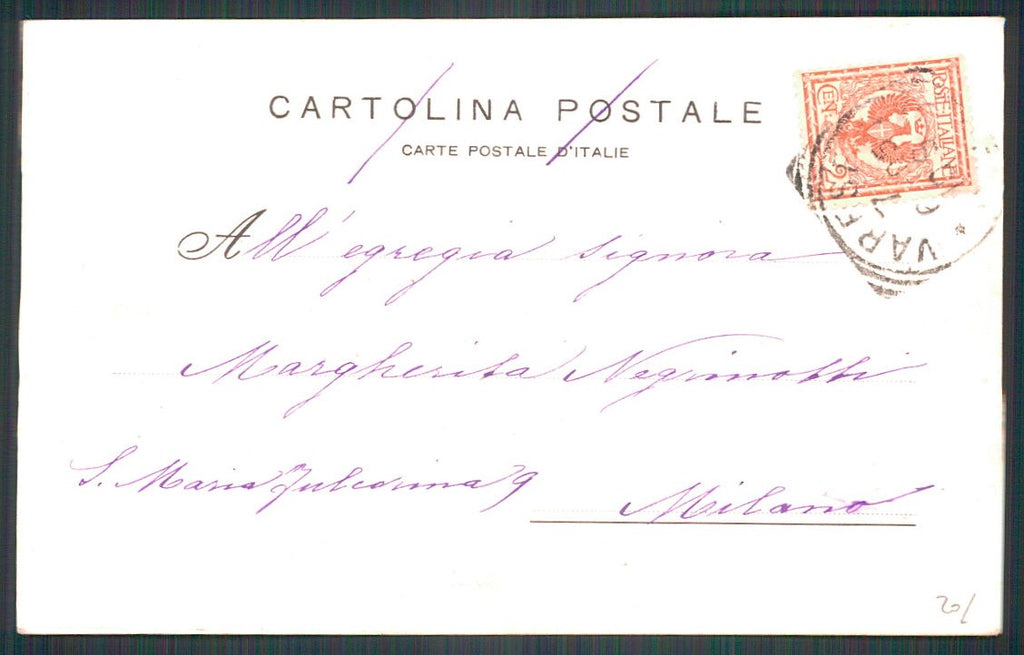 CARTOLINA POSTALE
CARTE POSTALE D'ITALIE
POSTE ITALIANE
CEN. 2
VARESE
All' egregia signora
Margherita
S. Maria Fulcorina 9
Milano
20/